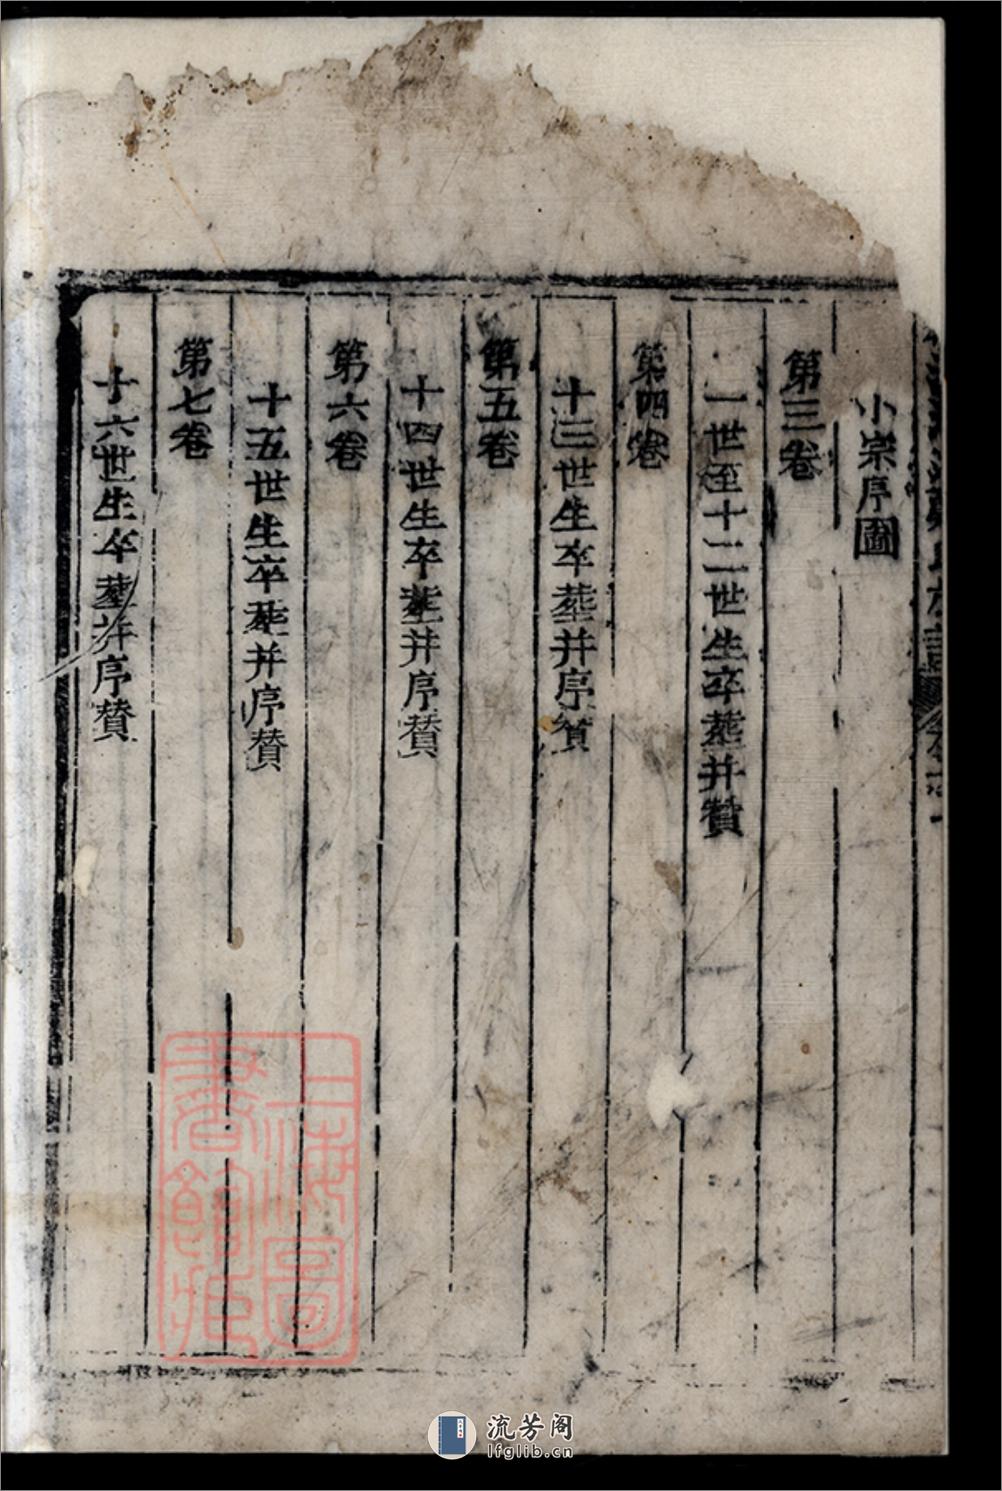 小宗序圖
第三卷
一世至十二世生卒塟并贊
第四卷
十三世生卒塟并序贊
第五卷
十四世生卒塟并序賛
第六卷
十五世生卒塟并序賛
第七卷
十六世生卒塟并序賛
上海圖
書館藏
流芳阁
lfglib.cn